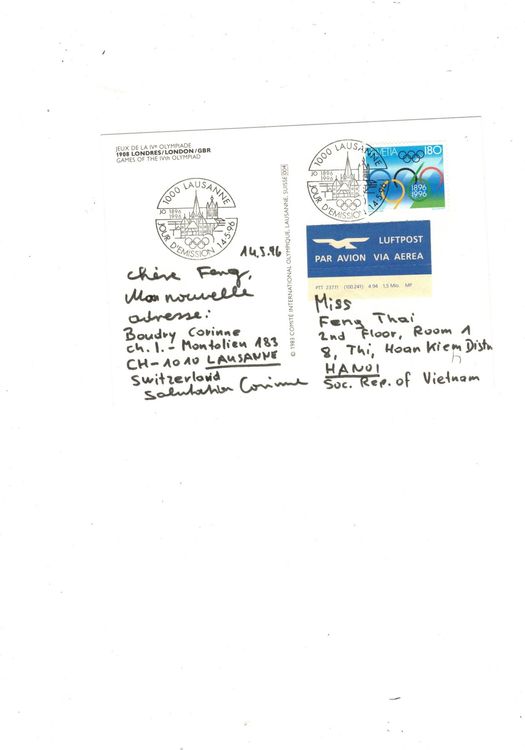 JEUX DE LA IVe OLYMPIADE
1908 LONDRES/LONDON/GBR
GAMES OF THE IVth OLYMPIAD
1000 LAUSANNE
JO 1896
1996
JOUR D'EMISSION 14.5.96
1000 LAUSANNE
JO 1896
1996
JOUR D'EMISSION 14.5.96
HELVETIA 180
1896
1996
LUFTPOST
PAR AVION VIA AEREA
PTT 237.11 (100.241) 4.94 1,5 Mio. MP
© 1983 COMITÉ INTERNATIONAL OLYMPIQUE, LAUSANNE, SUISSE 004
14.5.96
Chère Feng,
Mon nouvelle
adresse:
Boudry Corinne
ch. I.-Montolieu 183
CH-1010 LAUSANNE
Switzerland
Salutation Corinne
Miss
Feng Thai
2nd Floor, Room 1
8, Thi, Hoan Kiem
HANOI
Soc. Rep. of Vietnam